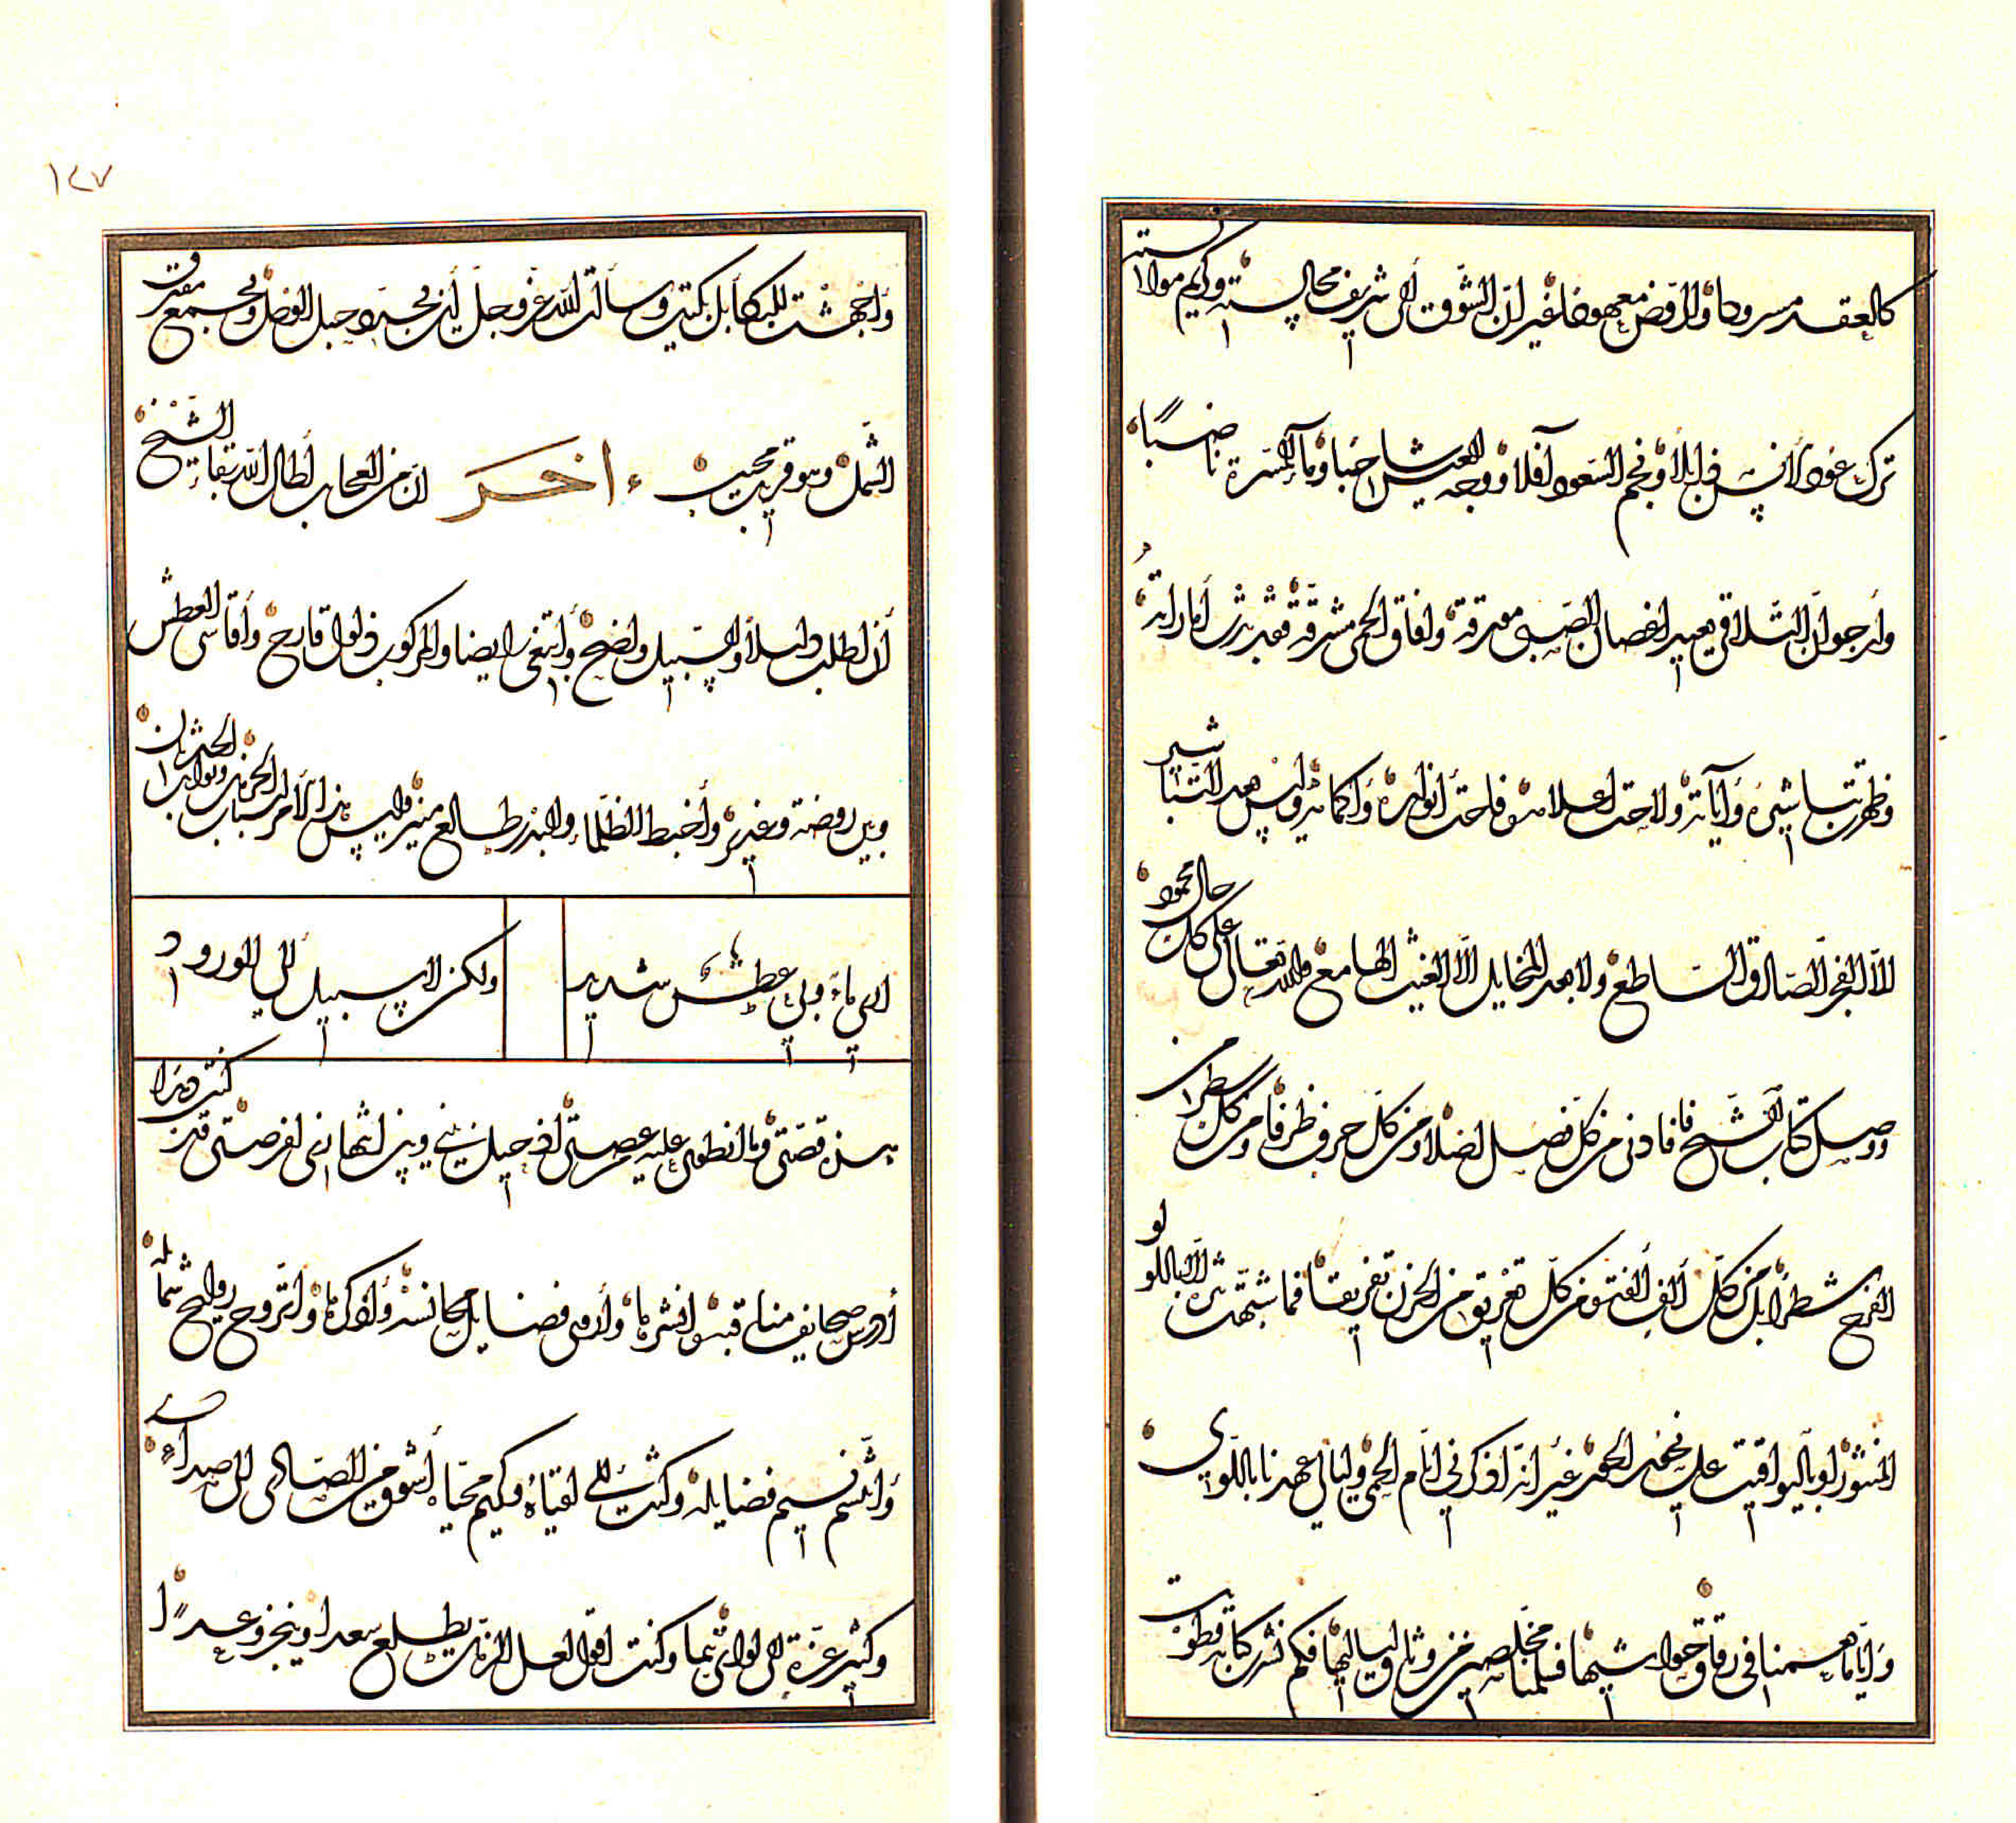 كالعقد مسرودا والروض معهودا غير ان الشوق الى شريف مجالسته وكريم مؤانسته
ترك عود الأنس ذابلا ونجم السعود آفلا ووجه العيش شاحبا وماء المسرة ناضبا
وأرجو ان التلاقي يعيد اغصان الصبى مورقة وافاق الحمى مشرقة فقد بدت أماراته
وظهرت تباشيره وآياته ولاحت اعلامه وفاحت أنواره وأكمامه وليس بعد التباشير
الا الفجر الصادق الساطع ولا بعد المخايل الا الغيث الهامع ولله تعالى على كل حال محمود
ووصل كتاب الشيخ فافادني من كل فصل فضلا ومن كل حرف ظرفا ومن كل سطر من
الفرح شطرا بل من كل ألف ألفة ومن كل تفريق من الحزن تفريقا فما شبهته الا باللؤلؤ
المنثور او باليواقيت على نحور الحور غير انه اذكرني ايام الحمى وليالي عهدنا باللوى
واياما همنا في رقاق حواشيها فيا مخلصي من وثاق لياليها فكم نشر كتابه قطويت
١٢٧
وأجهشت للبكاء بل بكيت وسألت الله عز وجل أن يجدد حبل الوصل ويجمع مفترق
الشمل وهو قريب مجيب اخر ان من العجائب أطال الله بقاء الشيخ
أن اطلب دليلا والسبيل واضح وأبتغي رايضا والمركوب ذلول قارح وأقاسي العطش
وبين روضة وغدير وأخبط الظلماء والبدر طالع منير وليس هذا الأمر الا لسباب الحرمان ونوايب الحدثان
ارى ماء وبي عطش شديد ولكن لا سبيل الى الورود
هذه قصتي وما انطوى عليه عصتي اذ حيل بيني وبين انتهازي لفرصتي قد كنت دهرا
أدرس صحايف مناقبه وانشرها وأروى فضايل مجانسه وأذكرها وأتروح روايح شمائله
وأتنسم نسيم فضايله وكنت الى لقياه وكريم محياه أشوق من الصادى الى صداء
وكثير عزة الى لوائى تيما وكنت اقول لعل الزمان يطلع سعدا وينجز وعدا